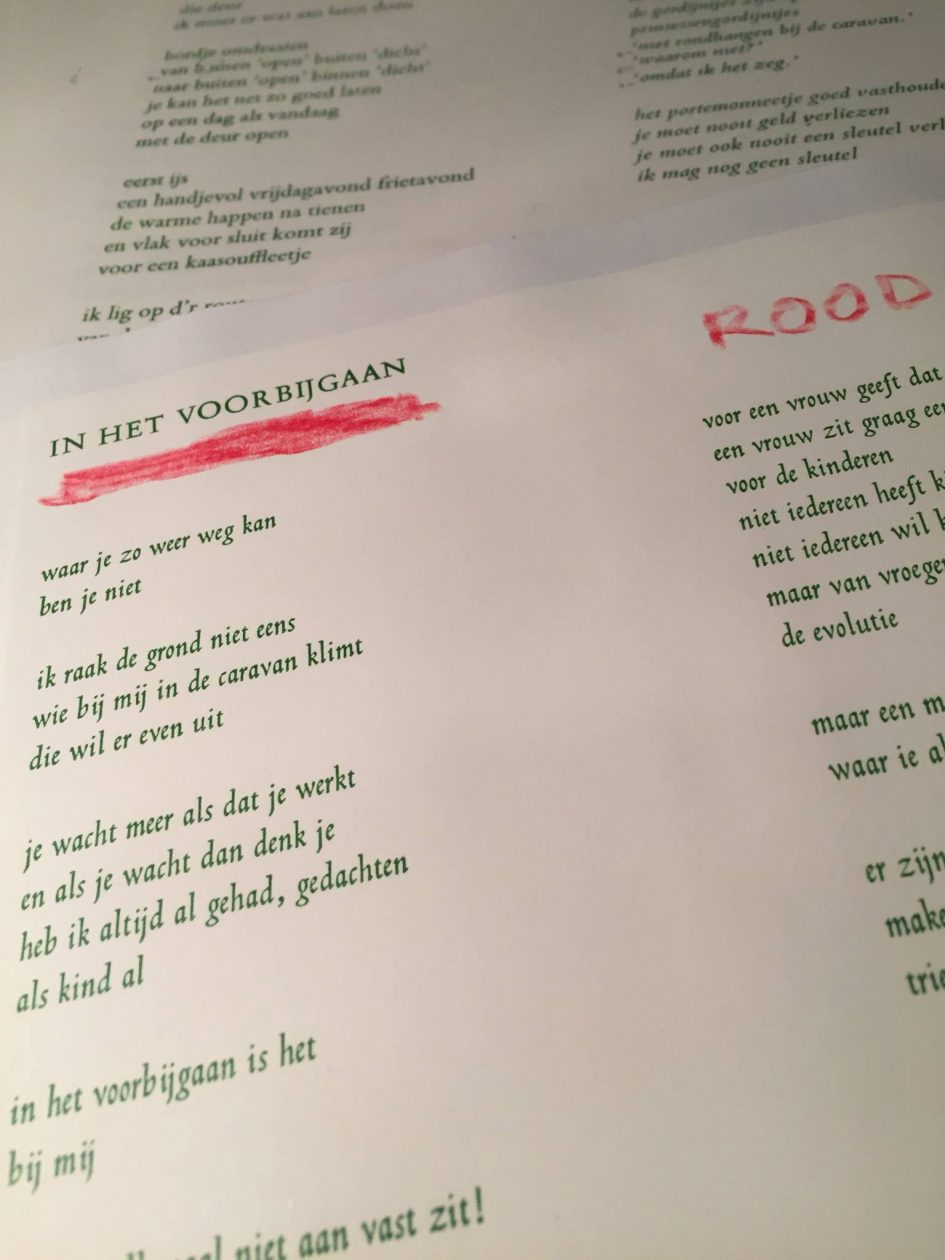 die deur
hordje omdraaien
van binnen 'open' buiten 'dicht'
naar buiten 'open' binnen 'dicht'
je kan het net zo goed laten
op een dag als vandaag
met de deur open
eerst ijs
een handjevol vrijdagavond frietavond
de warme happen na tienen
en vlak voor sluit komt zij
voor een kaasouffleetje
ik lig op d'r
de gordijntjes zijn
prinsessengordijntjes
'met rondhangen bij de caravan.'
'waarom niet?'
'omdat ik het zeg.'
het portemonneetje goed vasthoude
je moet nooit geld verliezen
je moet ook nooit een sleutel verl
ik mag nog geen sleutel
IN HET VOORBIJGAAN
waar je zo weer weg kan
ben je niet
ik raak de grond niet eens
wie bij mij in de caravan klimt
die wil er even uit
je wacht meer als dat je werkt
en als je wacht dan denk je
heb ik altijd al gehad, gedachten
als kind al
in het voorbijgaan is het
bij mij
niet aan vast zit!
ROOD
voor een vrouw geeft dat
een vrouw zit graag ee
voor de kinderen
niet iedereen heeft k
niet iedereen wil k
maar van vroeger
de evolutie
maar een m
waar ie al
er zijn
make
trie